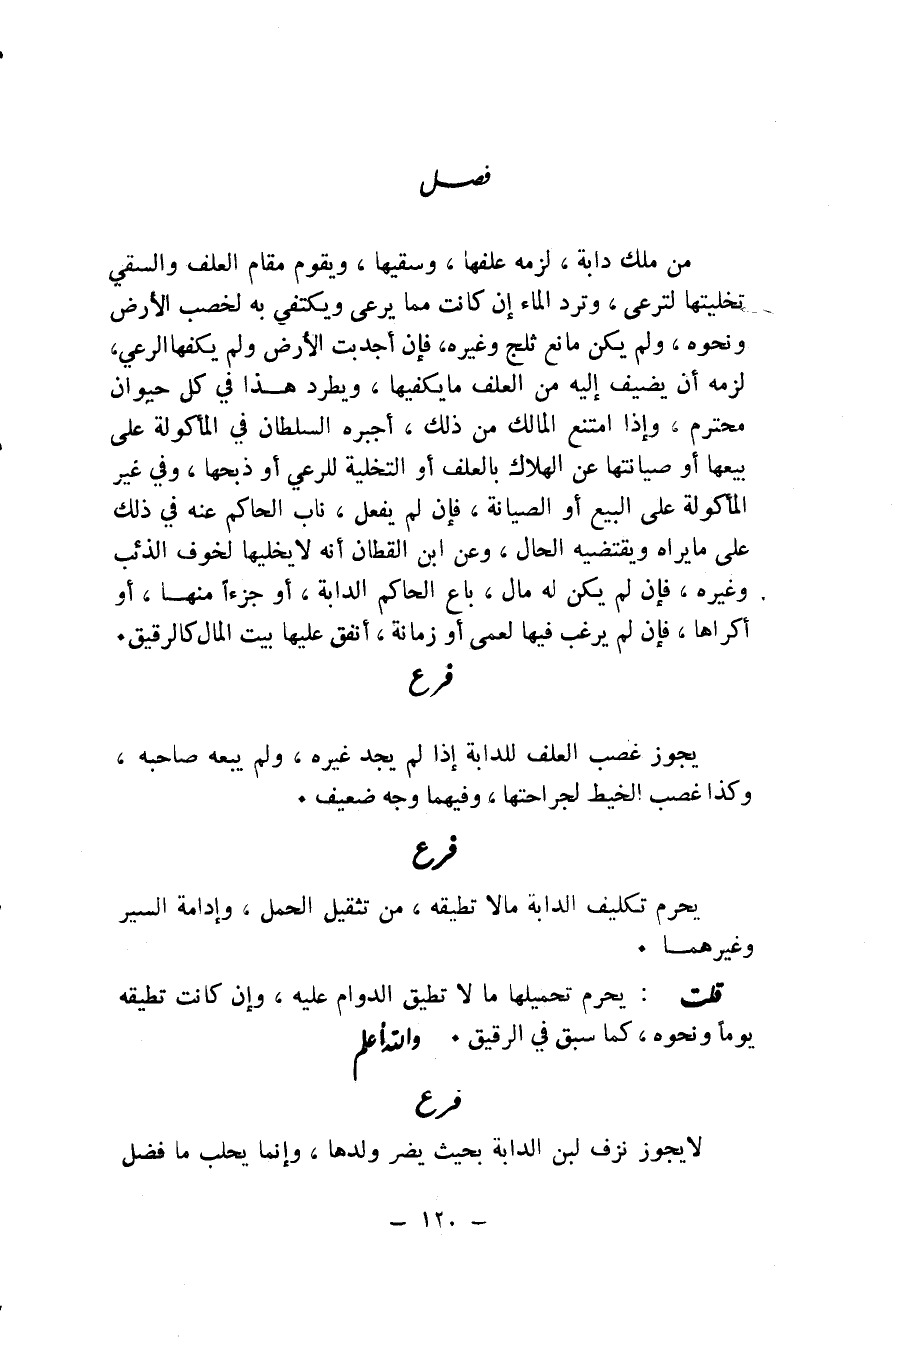 فصـــل
من ملك دابة ، لزمه علفها ، وسقيها ، ويقوم مقام العلف والسقي
تخليتها لترعى ، وترد الماء إن كانت مما يرعى ويكتفي به لخصب الأرض
ونحوه ، ولم يكن مانع ثلج وغيره، فإن أجدبت الأرض ولم يكفها الرعي،
لزمه أن يضيف إليه من العلف مايكفيها ، ويطرد هـــذا في كل حيوان
محترم ، وإذا امتنع المالك من ذلك ، أجبره السلطان في المأكولة على
بيعها أو صيانتها عن الهلاك بالعلف أو التخلية للرعي أو ذبحها ، وفي غير
المأكولة على البيع أو الصيانة ، فإن لم يفعل ، ناب الحاكم عنه في ذلك
على مايراه ويقتضيه الحال ، وعن ابن القطان أنه لايخليها لخوف الذئب
وغيره ، فإن لم يكن له مال ، باع الحاكم الدابة ، أو جزءاً منهـــا ، أو
أكراها ، فإن لم يرغب فيها لعمى أو زمانة ، أنفق عليها بيت المال كالرقيق.
فرع
يجوز غصب العلف للدابة إذا لم يجد غيره ، ولم يبعه صاحبه ،
وكذا غصب الخيط لجراحتها ، وفيهما وجه ضعيف .
فرع
يحرم تكليف الدابة مالا تطيقه ، من تثقيل الحمل ، وإدامة السير
وغيرهمـــا .
قلت : يحرم تحميلها ما لا تطيق الدوام عليه ، وإن كانت تطيقه
يوماً ونحوه ، كما سبق في الرقيق . والله أعلم
فرع
لايجوز نزف لبن الدابة بحيث يضر ولدها ، وإنما يحلب ما فضل
– ١٢٠ –